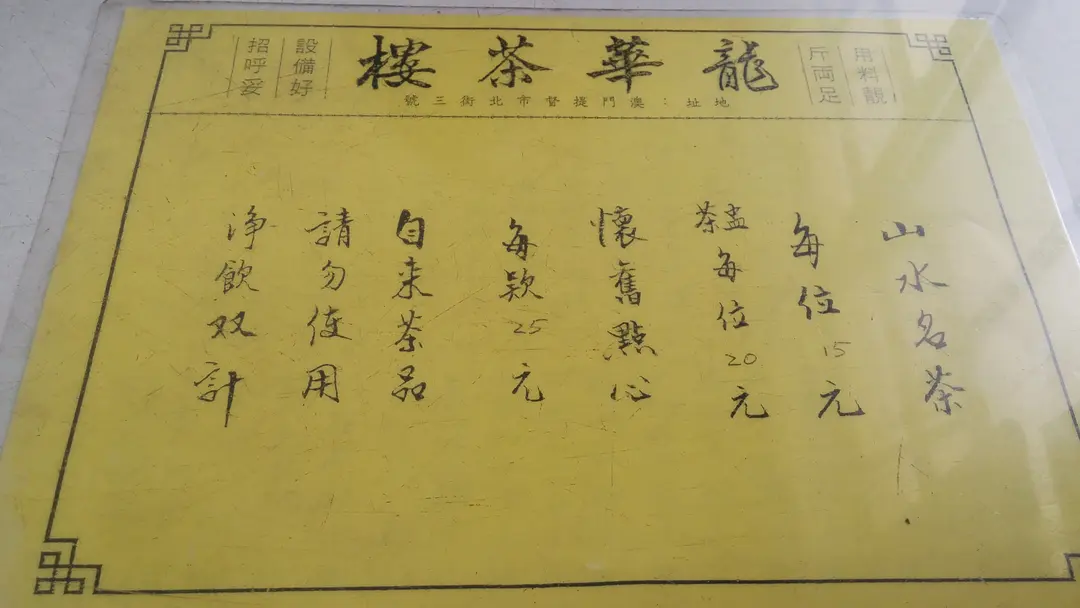 龍華茶樓
地址：澳門提督市北街三號
用料靚
斤両足
設備好
招呼妥
山水名茶
每位15元
茶盅每位20元
懷舊點心
每款25元
自来茶品
請勿使用
净飲双計